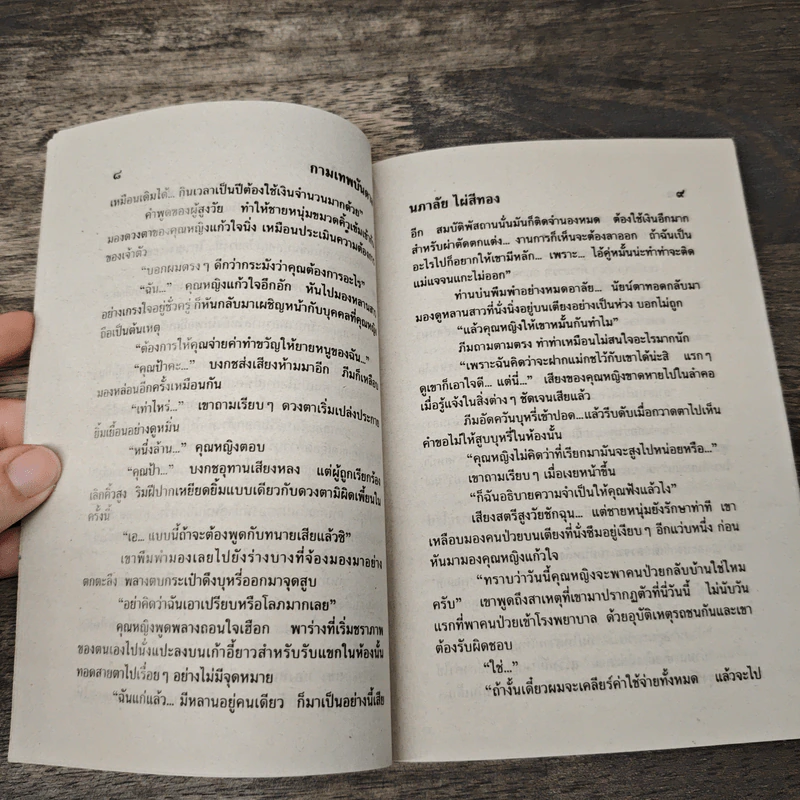 ๘
กามเทพบันดาล
เหมือนเดิมได้... กินเวลาเป็นปีต้องใช้เงินจำนวนมากด้วย”
คำพูดของผู้สูงวัย ทำให้ชายหนุ่มขมวดคิ้วเข้ม
มองดวงตาของคุณหญิงแก้วใจนิ่ง เหมือนประเมินความต้องการ
ของเจ้าตัว
“บอกผมตรงๆ ดีกว่ากระมังว่าคุณต้องการอะไร”
“ฉัน...” คุณหญิงแก้วใจอึกอัก หันไปมองหลานสาว
อย่างเกรงใจอยู่ชั่วครู่ ก็หันกลับมาเผชิญหน้ากับบุคคลที่คุณหญิง
ถือเป็นต้นเหตุ
“ต้องการให้คุณจ่ายค่าทำขวัญให้ยายหนูของฉัน...”
“คุณป้าคะ...” บงกชส่งเสียงห้ามมาอีก ภีมก็เหลือบ
มองหล่อนอีกครั้งเหมือนกัน
“เท่าไหร่...” เขาถามเรียบๆ ดวงตาเริ่มเปล่งประกาย
ยิ้มเยื้อนอย่างดูหมิ่น
“หนึ่งล้าน...” คุณหญิงตอบ
“คุณป้า...” บงกชอุทานเสียงหลง แต่ผู้ถูกเรียกร้อง
เลิกคิ้วสูง ริมฝีปากเหยียดยิ้มแบบเดียวกับดวงตามิผิดเพี้ยนใน
ครั้งนี้
“เอ... แบบนี้ถ้าจะต้องพูดกับทนายเสียแล้วซิ”
เขาพึมพำมองเลยไปยังร่างบางที่จ้องมองมาอย่าง
ตกตะลึง พลางตบกระเป๋าดึงบุหรี่ออกมาจุดสูบ
“อย่าคิดว่าฉันเอาเปรียบหรือโลภมากเลย”
คุณหญิงพูดพลางถอนใจเฮือก พาร่างที่เริ่มชราภาพ
ของตนเองไปนั่งแปะลงบนเก้าอี้ยาวสำหรับรับแขกในห้องนั้น
ทอดสายตาไปเรื่อยๆ อย่างไม่มีจุดหมาย
“ฉันแก่แล้ว... มีหลานอยู่คนเดียว ก็มาเป็นอย่างนี้เสีย
นภาลัย ไผ่สีทอง
๙
อีก สมบัติพัสถานนั่นมันก็ติดจำนองหมด ต้องใช้เงินอีกมาก
สำหรับผ่าตัดตกแต่ง... งานการก็เห็นจะต้องลาออก ถ้าฉันเป็น
อะไรไปก็อยากให้เขามีหลัก... เพราะ... ไอ้คู่หมั้นน่ะท่าทำจะติด
แม่แจจนแกะไม่ออก”
ท่านบ่นพึมพำอย่างหมดอาลัย... นัยน์ตาทอดกลับมา
มองดูหลานสาวที่นั่งนิ่งอยู่บนเตียงอย่างเป็นห่วง บอกไม่ถูก
“แล้วคุณหญิงให้เขาหมั้นกันทำไม”
ภีมถามตามตรง ท่าทำเหมือนไม่สนใจอะไรมากนัก
“เพราะฉันคิดว่าจะฝากแม่กชไว้กับเขาได้น่ะสิ แรกๆ
ดูเขาก็เอาใจดี... แต่นี่...” เสียงของคุณหญิงขาดหายไปในลำคอ
เมื่อรู้แจ้งในสิ่งต่างๆ ชัดเจนเสียแล้ว
ภีมอัดควันบุหรี่เข้าปอด...แล้วรีบดับเมื่อกวาดตาไปเห็น
คำขอไม่ให้สูบบุหรี่ในห้องนั้น
“คุณหญิงไม่คิดว่าที่เรียกมามันจะสูงไปหน่อยหรือ...”
เขาถามเรียบๆ เมื่อเงยหน้าขึ้น
“ก็ฉันอธิบายความจำเป็นให้คุณฟังแล้วไง”
เสียงสตรีสูงวัยชักฉุน... แต่ชายหนุ่มยังรักษาท่าที เขา
เหลือบมองคนป่วยบนเตียงที่นั่งซึมอยู่เงียบๆ อีกแวบหนึ่ง ก่อน
หันมามองคุณหญิงแก้วใจ
“ทราบว่าวันนี้คุณหญิงจะพาคนป่วยกลับบ้านใช่ไหม
ครับ” เขาพูดถึงสาเหตุที่เขามาปรากฏตัวที่นี่วันนี้ ไม่นับวัน
แรกที่พาคนป่วยเข้าโรงพยาบาล ด้วยอุบัติเหตุรถชนกันและเขา
ต้องรับผิดชอบ
“ใช่...”
“ถ้างั้นเดี๋ยวผมจะเคลียร์ค่าใช้จ่ายทั้งหมด แล้วจะไป